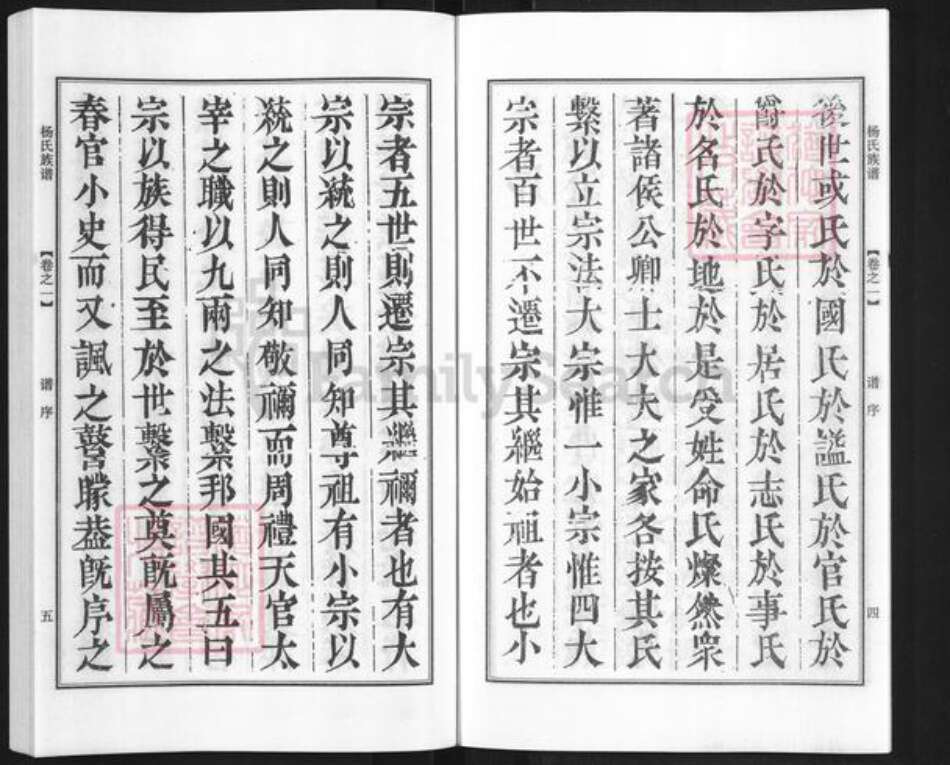 杨氏族谱 【卷之一】 谱序 四
後世或氏於國氏於諡氏於官氏於
爵氏於字氏於居氏於志氏於事氏
於名氏於地於是受姓命氏燦然衆
著諸侯公卿士大夫之家各按其氏
繫以立宗法大宗惟一小宗惟四大
宗者百世不遷宗其繼始祖者也小
宗者五世則遷宗其繼禰者也有大
宗以統之則人同知尊祖有小宗以
統之則人同知敬禰而周禮天官太
宰之職以九兩之法繫邦國其五曰
宗以族得民至於世繫之奠既屬之
春官小史而又諷之瞽矇葢既序之
杨氏族谱 【卷之一】 谱序 五
FamilySearch